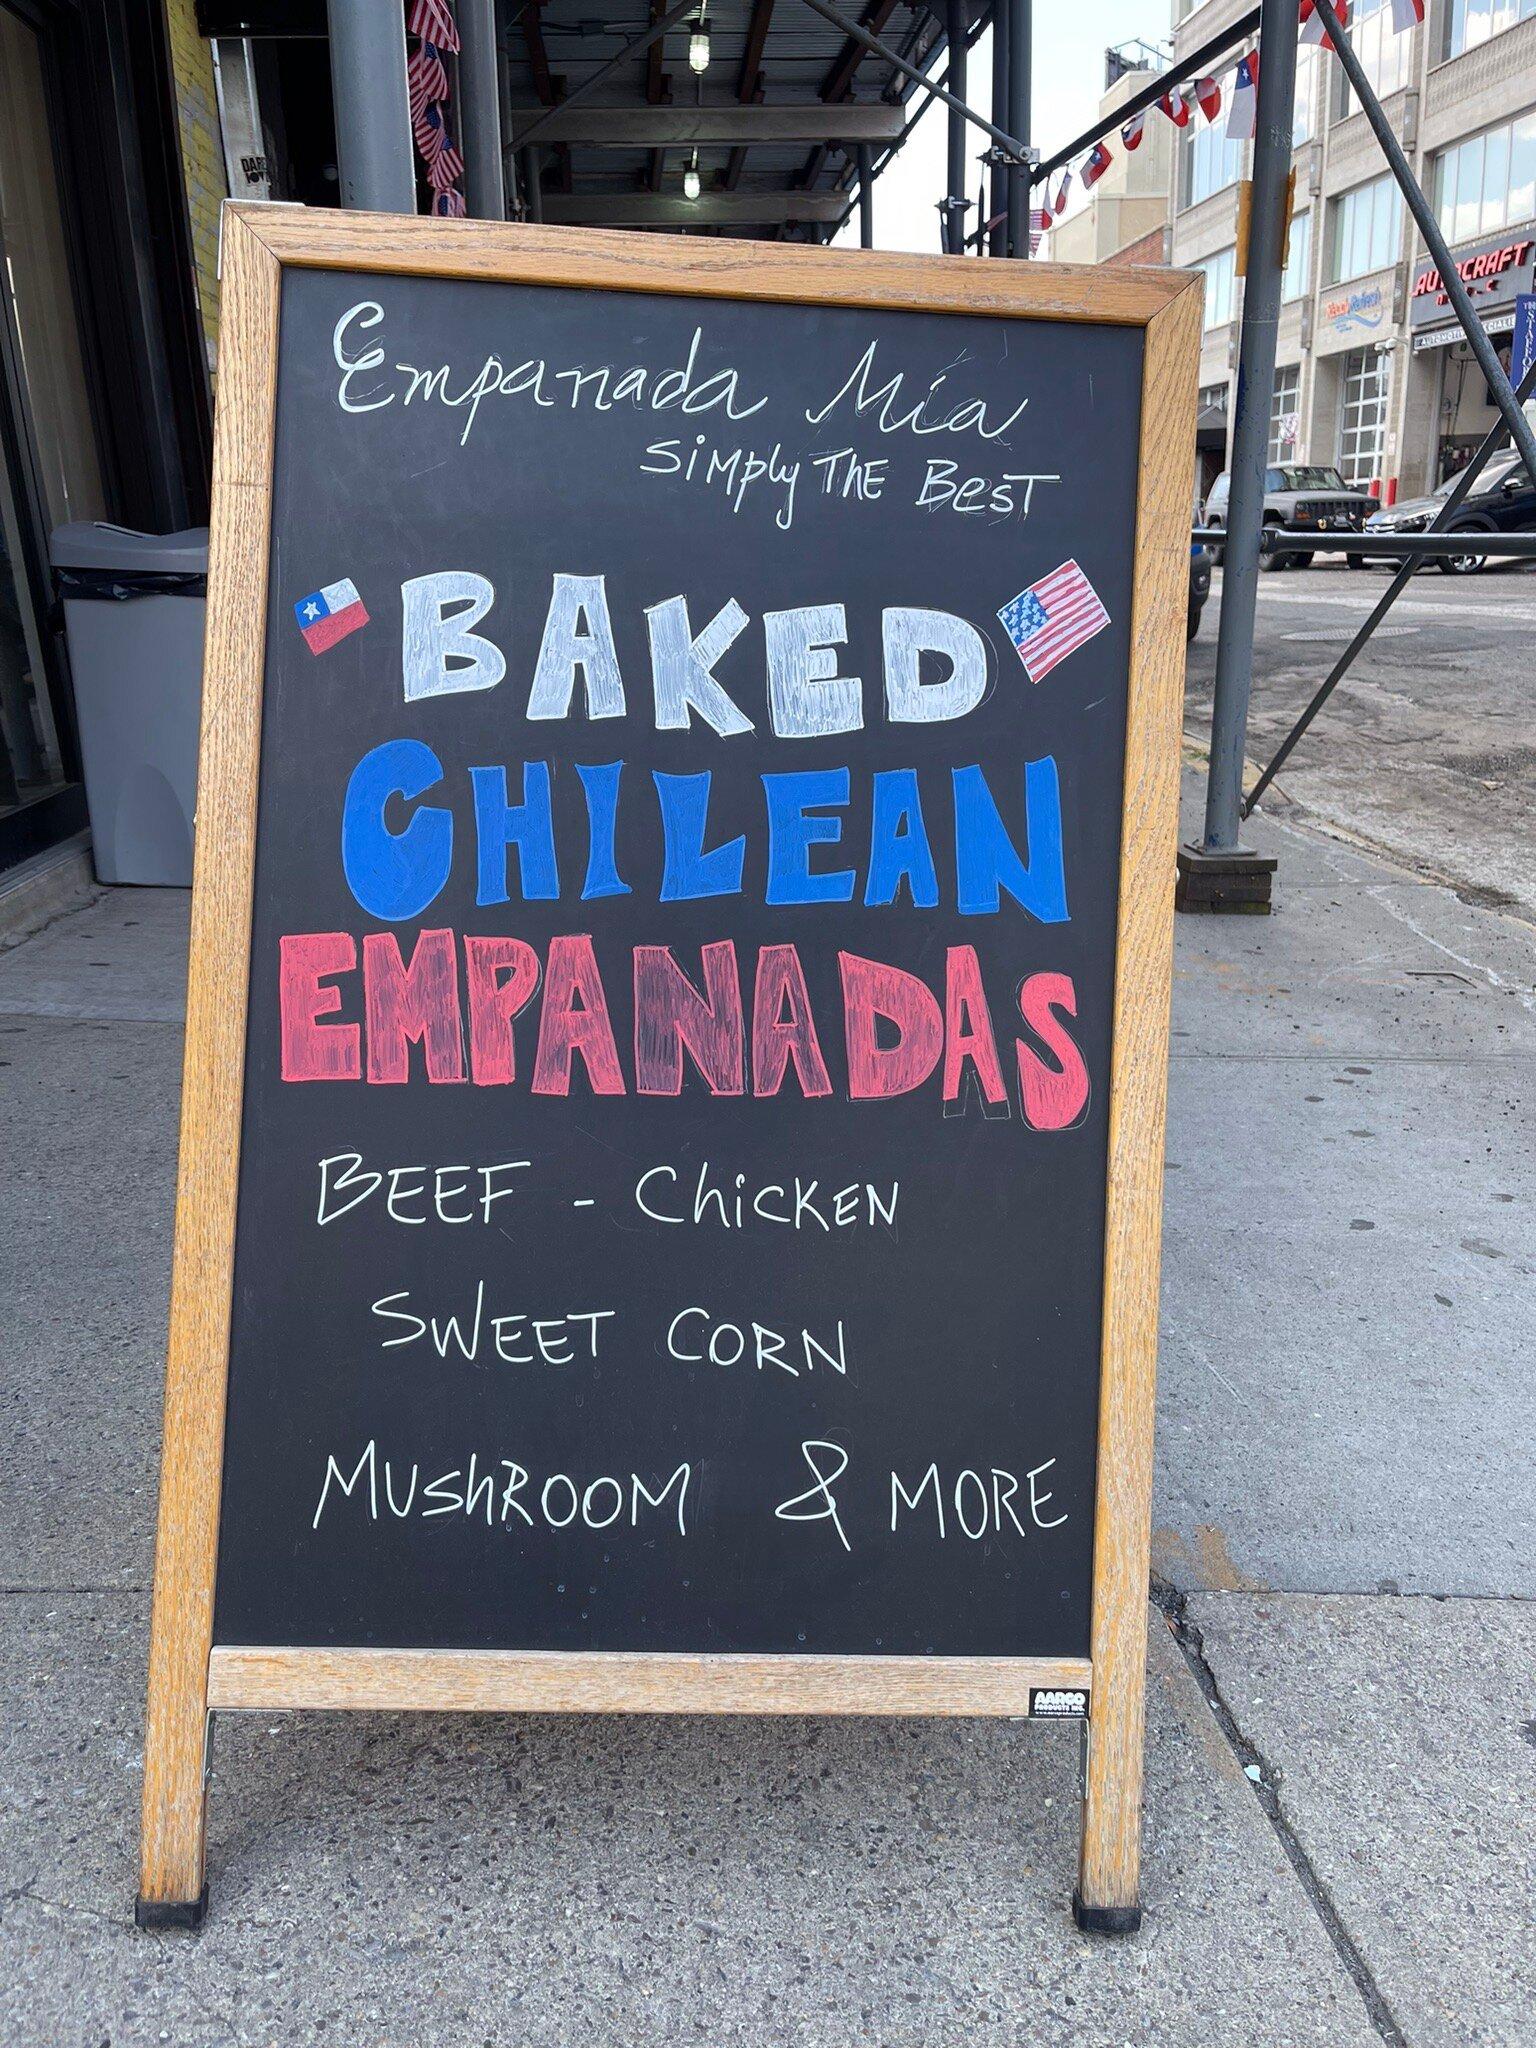 Empanada Mía
SiMply THE BesT
BAKED
CHILEAN
EMPANADAS
BEEF - ChicKEN
SWEET CORN
MUShROOM & MORE
AARCO
PRODUCTS INC.
AUTOCRAFT